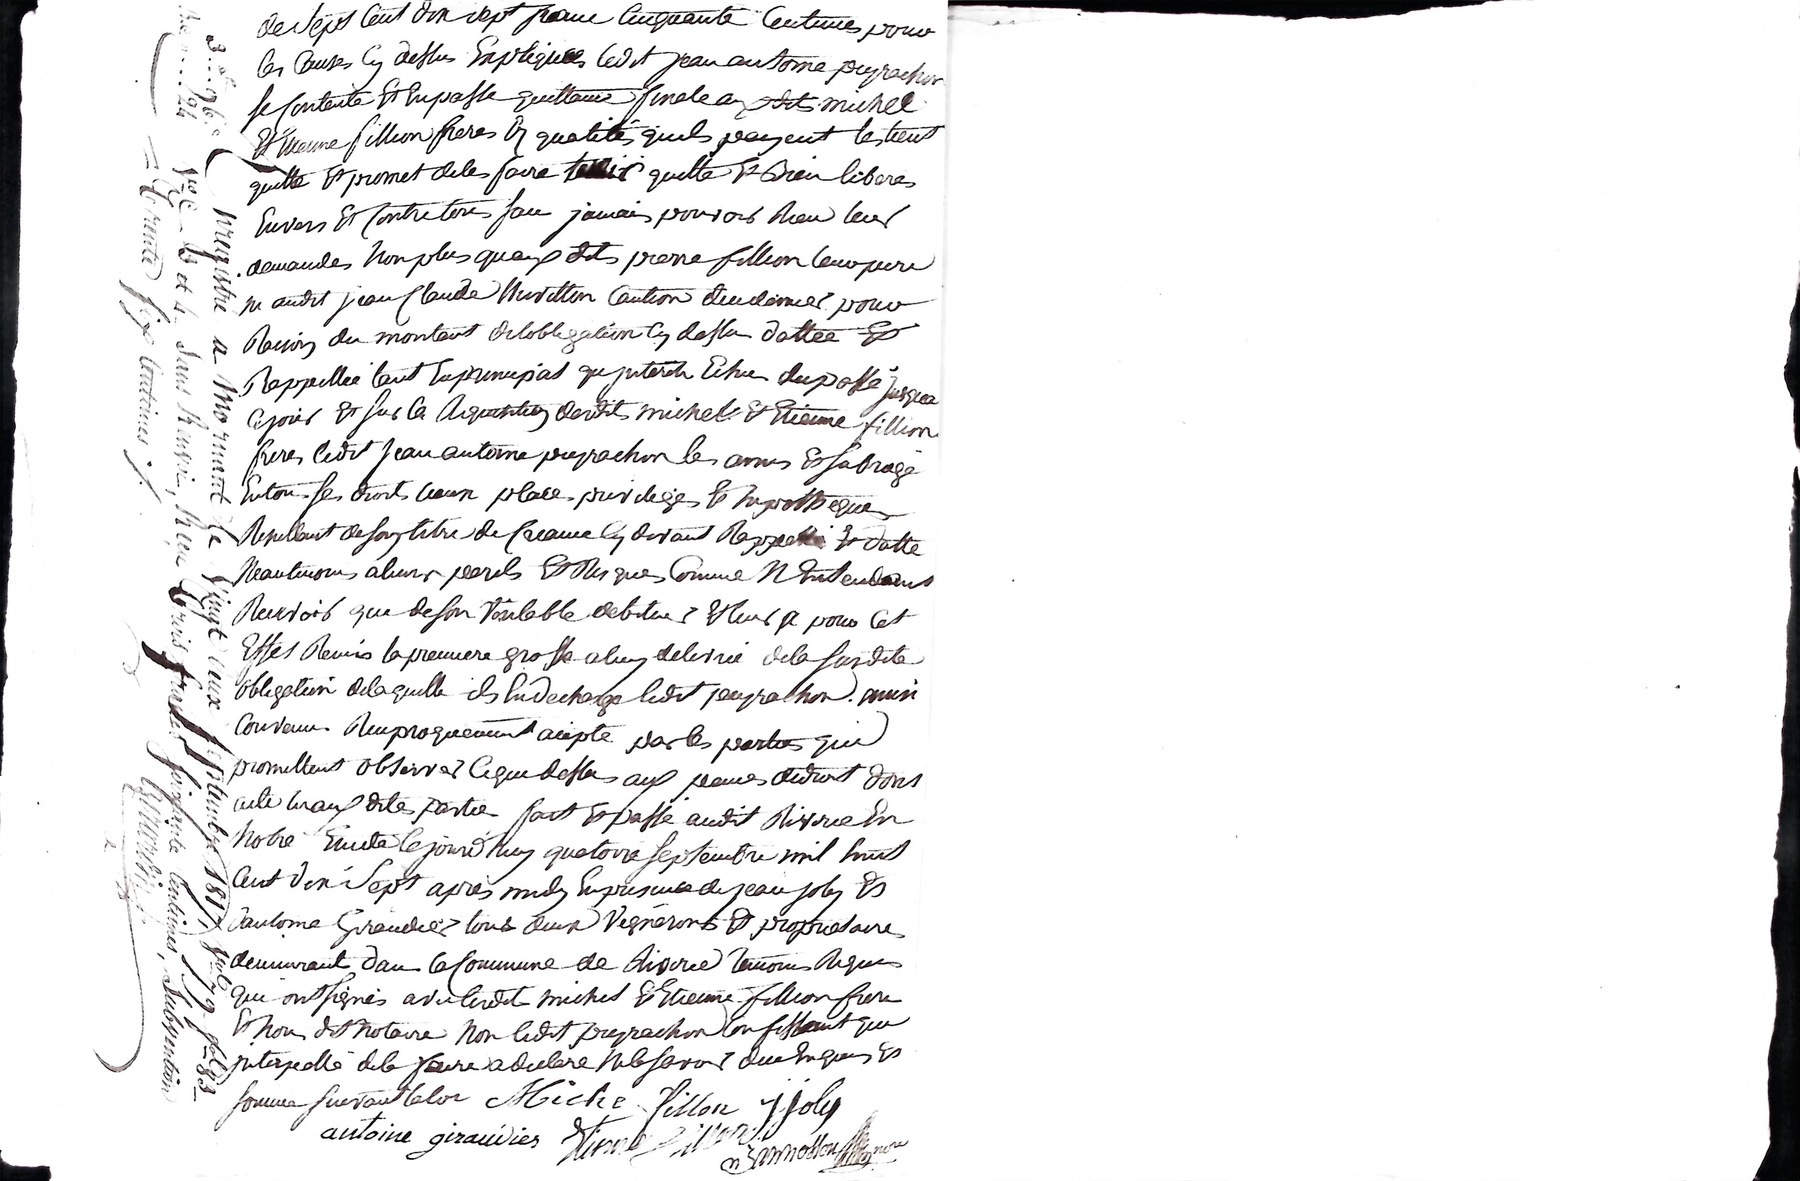 de Sept Cent dix sept franc Cinquante Centimes pour
les Causes Cy dessus Expliquees ledit jean antoine peyrachon
se Contente Et En passe quittance finale aux dits michel
Et Etienne fillion freres En qualités quils payent les tient
quitte Et promet deles faire tenir quitte Et bien liberes
Envers Et Contre tous sans jamais pouvoir Rien leur
demander Non plus quaux dits pierre fillion leur pere
ni audit jean Claude Caution du dernier pour
Raison du montant delobligation Cy dessu dattée Et
Rappellée tant En principal qu jnterets Echus du passé jusqua
Cejour Et sur la Requisition desdits michel Et Etienne fillion
freres ledit jean antoine peyrachon les amis Et subrogé
En tous ses droits lieux place privileges Et hypotheques
Resultant de son titre de Creance Cy devant Rappellé Et datté
Neantmoins aleurs perils Et Risques Comme N Entendant
Recevoir que de son veritable debiteur Et leur a pour Cet
Effet Remis la premiere grosse aluy delivrée dela susdite
obligation delaquelle ils En decharge ledit peyrachon. ainsi
Convenu Reciproquement acepté par les parties qui
promettent observer Ceque dessus aux peines dedroit dont
acte Et aux dites partie fait Et passé audit Riverie En
Notre Etude Cejourd'huy quatorze septembre mil huit
Cent dix Sept apres midy En presence de jean joly Et
dantoine Giraudier tous deux Vignerons Et proprietaires
demeurant dans la Commune de Riverie temoins Requis
qui ont signés avec lesdits michel Et Etienne fillion frere
Et Nous dit Notaire Non ledit peyrachon Confessant qui
jnterpellé dele faire a declare Ne le savoir due Enquis Et
somme suivant la loi Michel fillon j joly
antoine giraudier Etienne fillion
Enregistré a Mornant le Vingt deux septembre 1817, 179
et 4. Reçu trois francs soixante centimes, Subvention
trente six centimes.